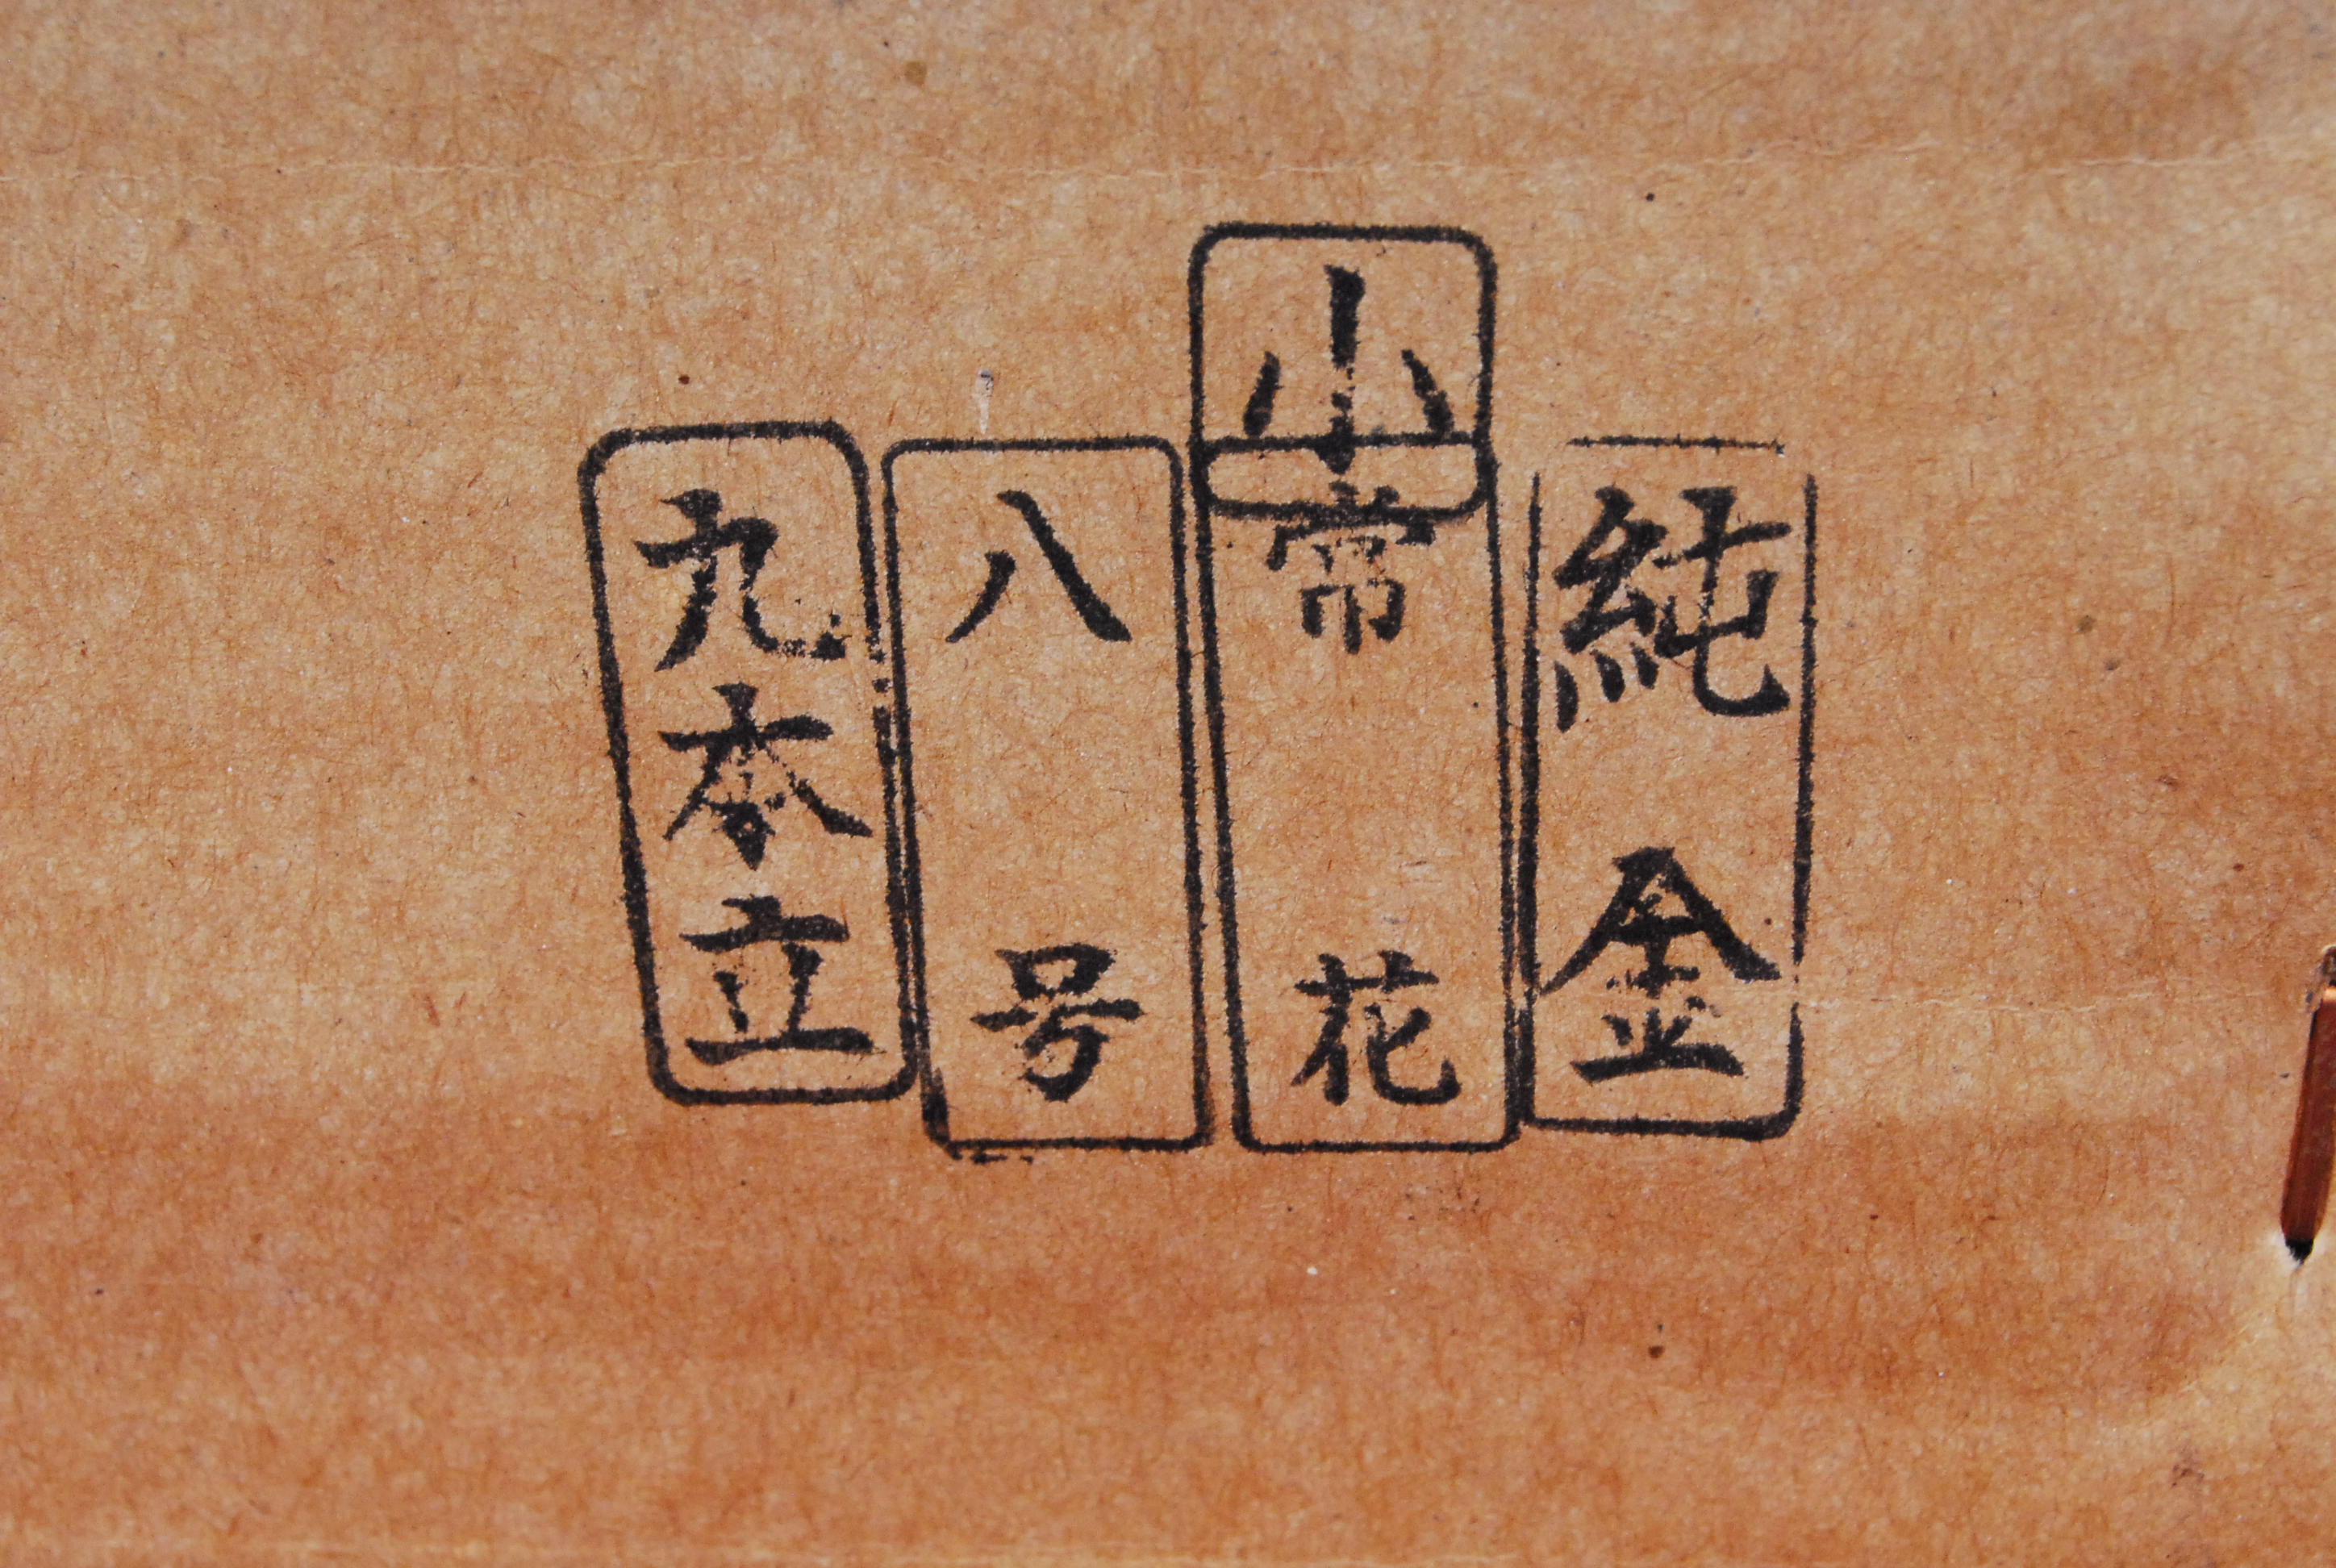 純金
小常花
八号
九本立